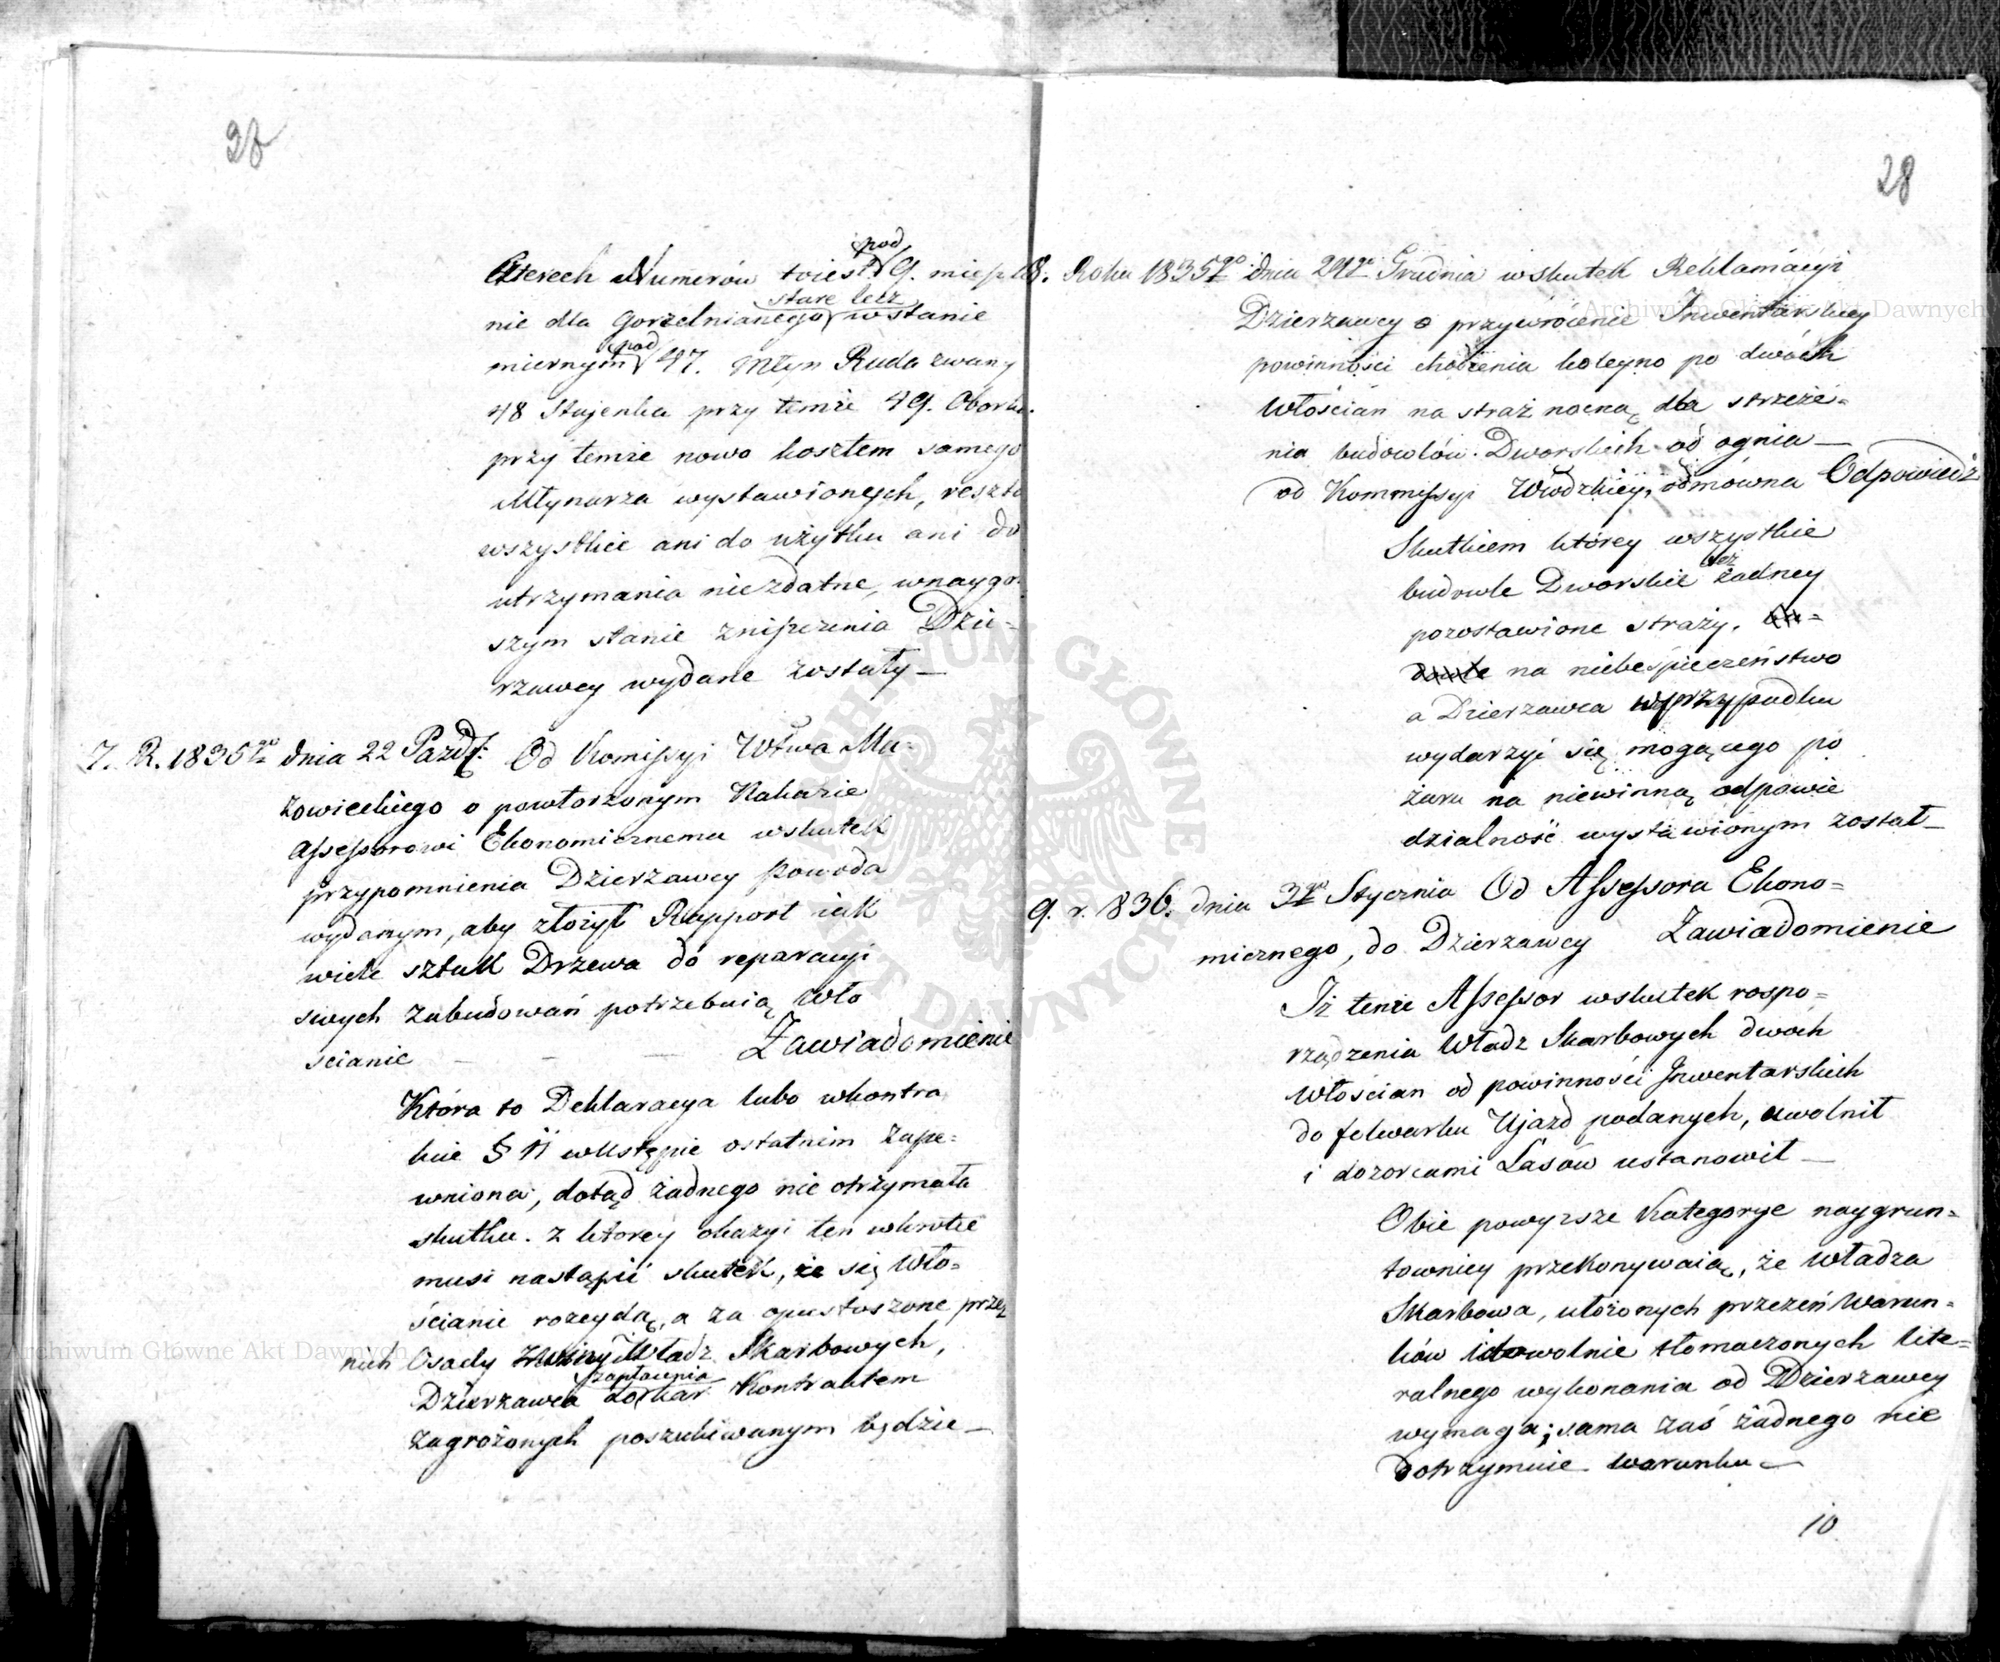 28
Czterech Numerów toiest pod 9. mieszka
nie dla Gorzelnianego stare lecz wstanie
miernym pod 47. Młyn Ruda zwany
48 Stajenka przy temże 49. Oborka
przy temże nowo kosztem samego
Młynarza wystawionych, reszta
wszystkie ani do użytku ani do
utrzymania niezdatne, wnaygor
szym stanie zniszczenia Dzie=
rzawcy wydane zostały —
7. R. 1835go dnia 22 Paźdz: Od Komissyi Wtwa Ma=
zowieckiego o powtorzonym Nakazie
Assessorowi Ekonomicznemu wskutek
przypomnienia Dzierzawcy powoda
wydanym, aby złożył Rapport iak
wiele sztuk Drzewa do reparacyi
swych zabudowań potrzebuią Wło
scianie — — — Zawiadomienie
Która to Deklaracya lubo wkontra
kcie § 11 wUstępie ostatnim zape=
wniona, dotąd żadnego nie otrzymała
skutku. z ktorey okazyi ten wkrotce
musi nastąpić skutek, że się Wło=
ścianie rozeydą, a za opustoszone przez
nich Osady zwiny Władz Skarbowych,
Dzierzawca zapłacenia kar Kontraktem
zagrożonych poszukiwanym będzie —
28
8. Roku 1835go dnia 24go Grudnia wskutek Reklamacyi
Dzierzawcy o przywrócenie Inwentarskiey
powinności chodzenia koleyno po dwóch
Włościan na straż nocną dla strzeże=
nia budowlów Dworskich od ognia —
od Kommissyi Wwodzkiey, odmówna Odpowiedź
Skutkiem którey wszystkie
budowle Dworskie bez żadney
pozostawione straży,
na niebespieczeństwo
a Dzierzawca wprzypadku
wydarzyć się mogącego po
żaru na niewinną odpowie
dzialność wystawionym został —
9. r. 836. dnia 3go Stycznia Od Assessora Ekono=
micznego, do Dzierzawcy Zawiadomienie
Iż tenże Assessor wskutek rospo=
rządzenia Władz Skarbowych dwóch
Włościan od powinności Inwentarskich
do folwarku Ujazd podanych, uwolnił
i dozorcami Lasów ustanowił —
Obie powyzsze Kategorye naygrun=
towniey przekonywaią, że Władza
Skarbowa, ułożonych przezeń Warun=
ków idowolnie tłomaczonych lite=
ralnego wykonania od Dzierzawcy
wymaga; sama zaś żadnego nie
dotrzymuie warunku —
10
Archiwum Główne Akt Dawnych
Archiwum Główne Akt Dawnych
ARCHIWUM GŁÓWNE AKT DAWNYCH